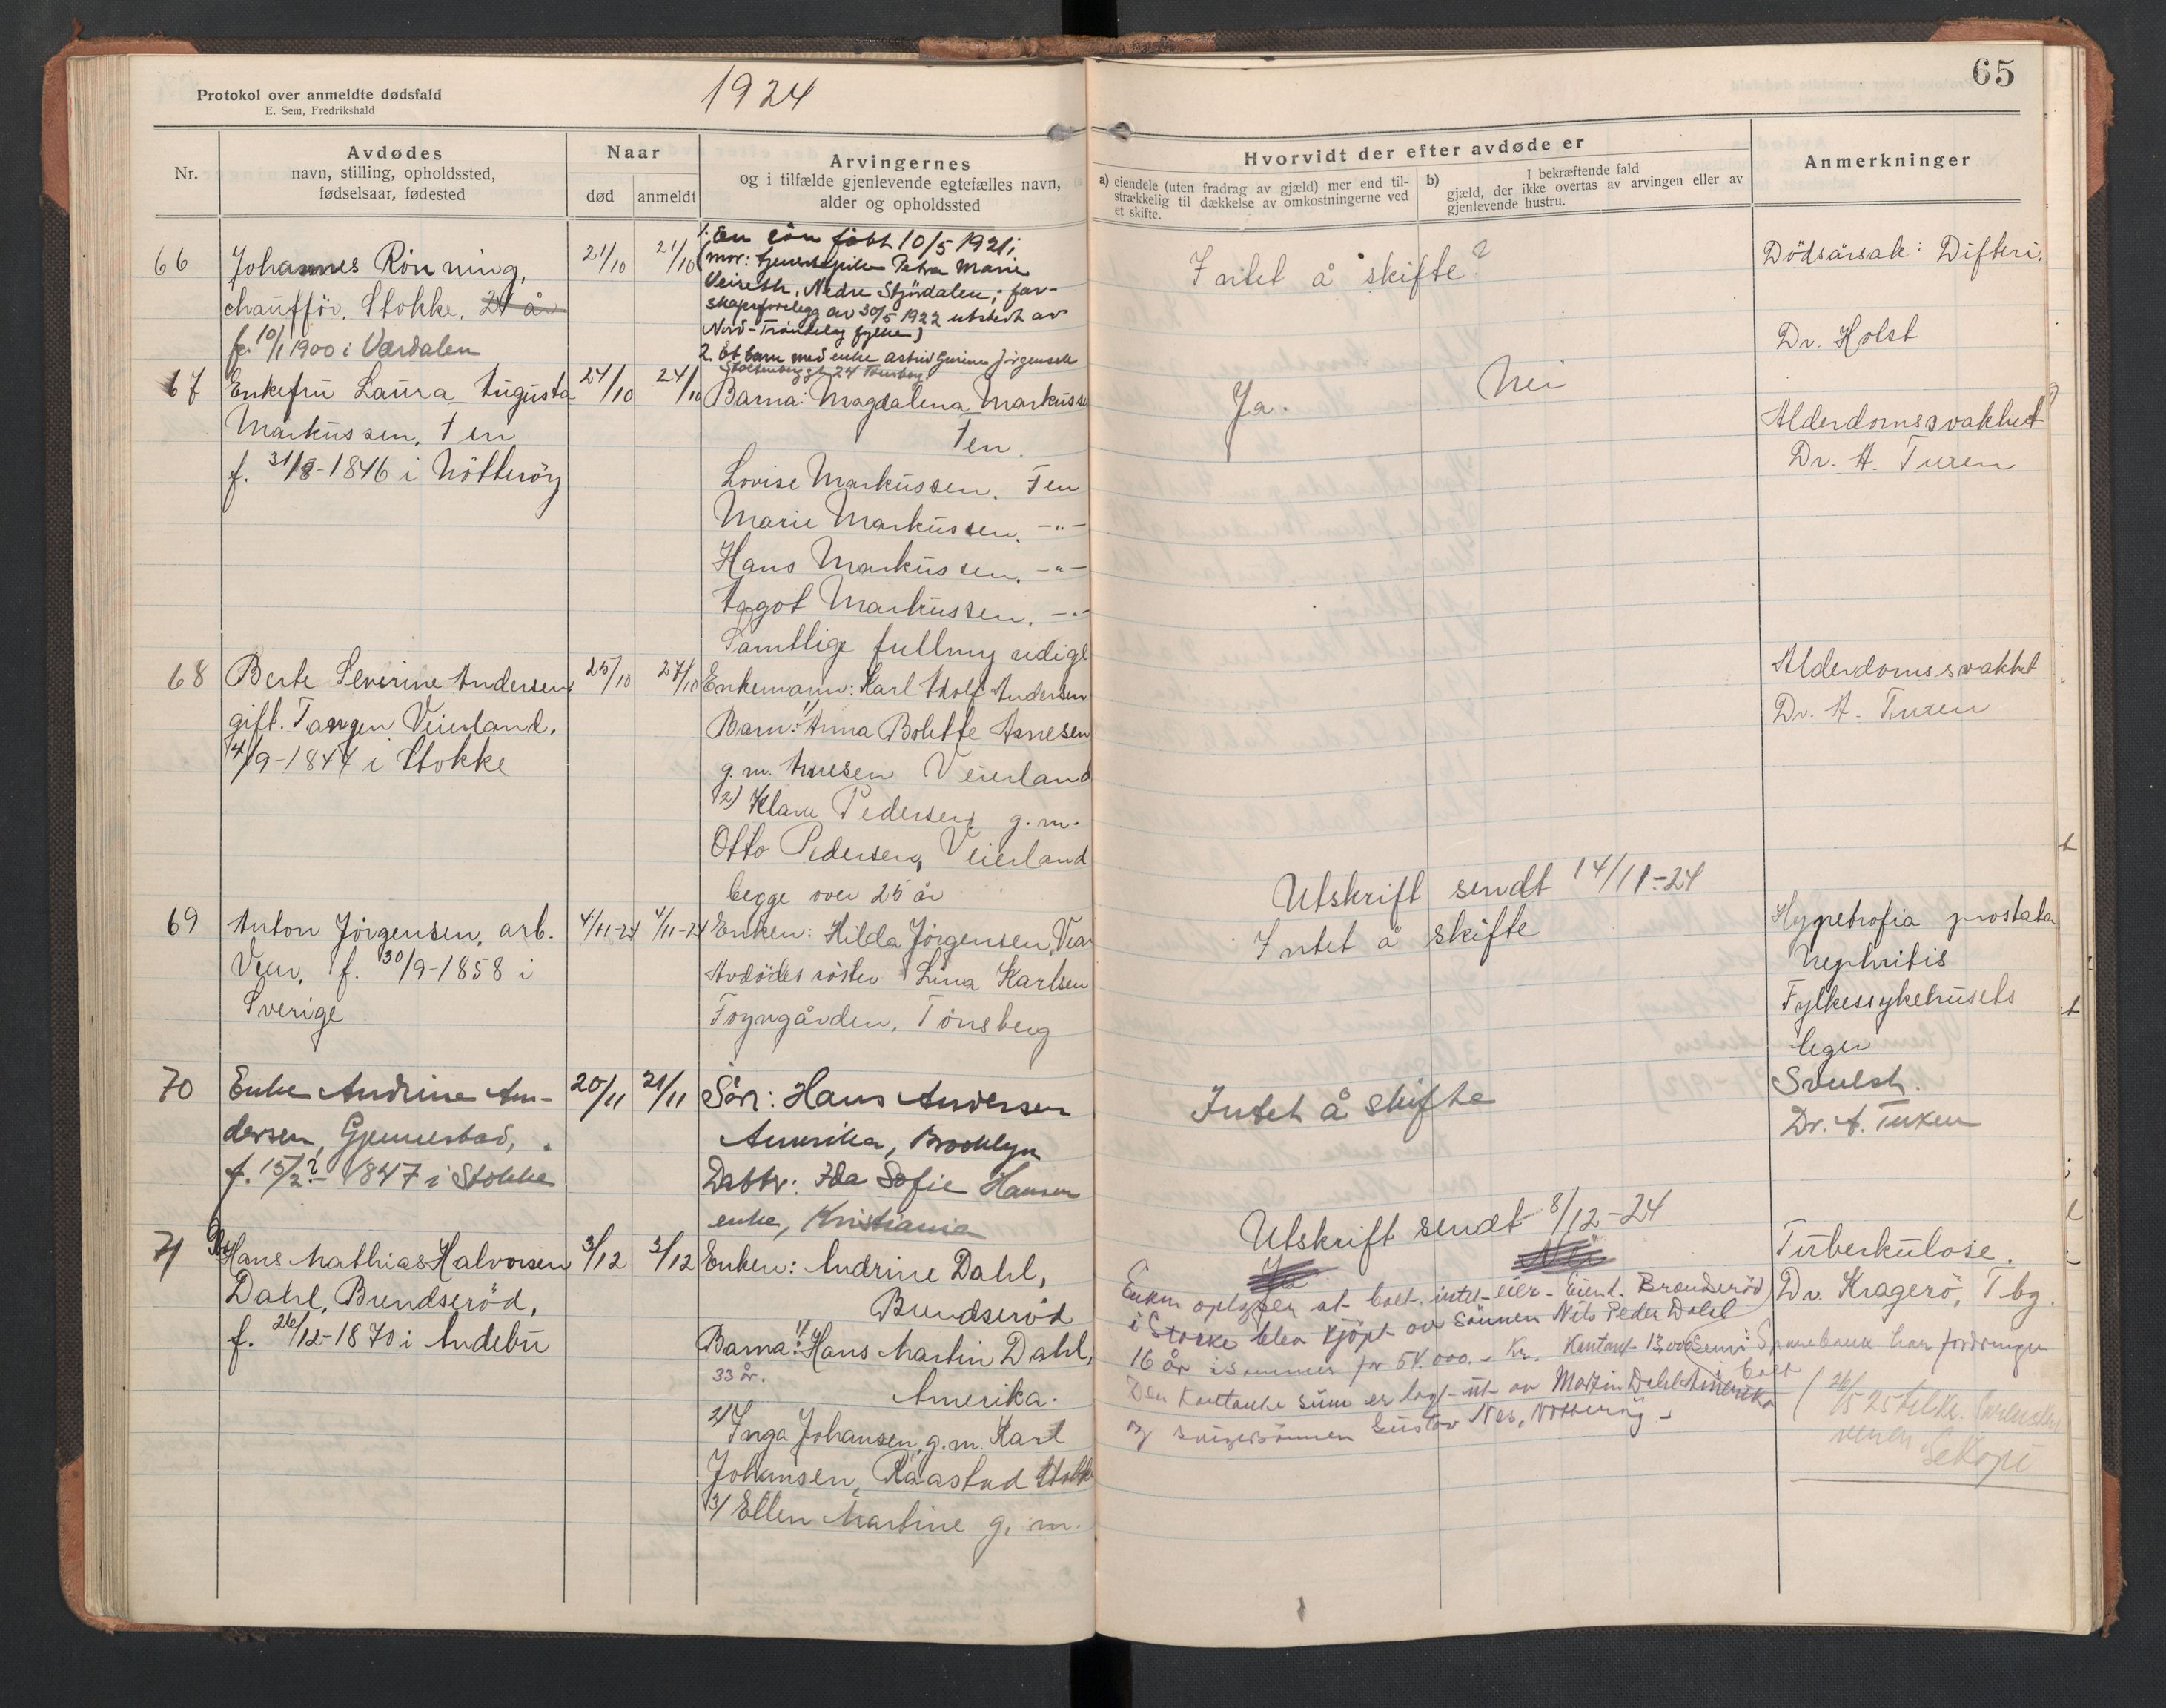 Protokol over anmeldte dødsfald
E. Sem, Fredrikshald
1924
65
Nr.
Avdødes
navn, stilling, opholdssted,
fødselsaar, fødested
Naar
død
anmeldt
Arvingernes
og i tilfælde gjenlevende egtefælles navn,
alder og opholdssted
Hvorvidt der efter avdøde er
a) eiendele (uten fradrag av gjæld) mer end til-
strækkelig til dækkelse av omkostningerne ved
et skifte.
b) I bekræftende fald
gjæld, der ikke overtas av arvingen eller av
gjenlevende hustru.
Anmerkninger
66
Johannes Rönning,
chaufför, Stokke, 24 år
f. 10/1 1900 i Værdalen
21/10
21/10
1. En sön född 10/5 1921 i
(mor: tjenestepike Petra Marie
Nedre Stjördalen; far-
skapsforelegg av 30/5 1922 utstedt av
Nord-Tröndelag fylke)
2. Et barn med enke Astrid Jörgensen
Stoltenbergsgt. 24 Tönsberg
Intet å skifte?
Dödsårsak: Difteri.
Dr. Holst
67
Enkefru Laura Augusta
Markussen, Ten
f. 31/8-1846 i Nötteröy
24/10
24/10
Barna: Magdalena Markussen
Ten.
Lovise Markussen. Ten
Marie Markussen. -"-
Hans Markussen. -"-
Aagot Markussen. -"-
Samtlige fullmyndige
Ja.
Nei
Alderdomssvakhet
Dr. A. Tuxen
68
Berte Severine Andersen,
gift. Tangen Veierland.
4/9-1844 i Stokke
25/10
27/10
Enkemann: Karl Adolf Andersen
Barn: 1) Anna Bolette Arnesen
g.m. Arnesen Veierland
2) Klara Pedersen g.m.
Otto Pedersen, Veierland
begge over 25 år
Alderdomssvakhet
Dr. A. Tuxen
Utskrift sendt 14/11-24
69
Anton Jörgensen, arb.
Vear, f. 30/9-1858 i
Sverige
4/11-24
4/11-24
Enken: Hilda Jörgensen, Vear
Avdödes söster Lina Karlsen
Foyngården, Tönsberg
Intet å skifte
Hypetrofia prostata
Nephritis
Fylkessykehusets
leger
70
Enke Andrine An-
dersen, Gjennestad,
f. 15/2?- 1847 i Stokke
20/11
21/11
Sön: Hans Andersen
Amerika, Brooklyn
Datter: Ida Sofie Hansen
enke, Kristiania
Intet å skifte
Svulst.
Dr. A. Tuxen
Utskrift sendt 8/12-24
71
Hans Mathias Halvorsen
Dahl, Brendseröd,
f. 26/12-1870 i Andebu
3/12
3/12
Enken: Andrine Dahl,
Brendseröd
Barna: 1) Hans Martin Dahl,
33 år.
Amerika.
2) Inga Johansen, g.m. Karl
Johansen, Råastad Stokke
3) Ellen Martine g.m.
Ja
Nei
Enken oplyser at boet intet eier - Eiend. Brendseröd
i Stokke blev kjöpt av sönnen Nils Peder Dahl
16 år isommer for 54.000.- Kr. Kontant 13.000 Sem Sparebank har fordringer i boet
Den kontante sum er lagt ut av Martin Dahl Amerika
og svigersönnen Gustav Nes, Nötteröy -
Tuberkulose.
Dr. Kragerö, Tbg.
26/5 25
Se Kopi